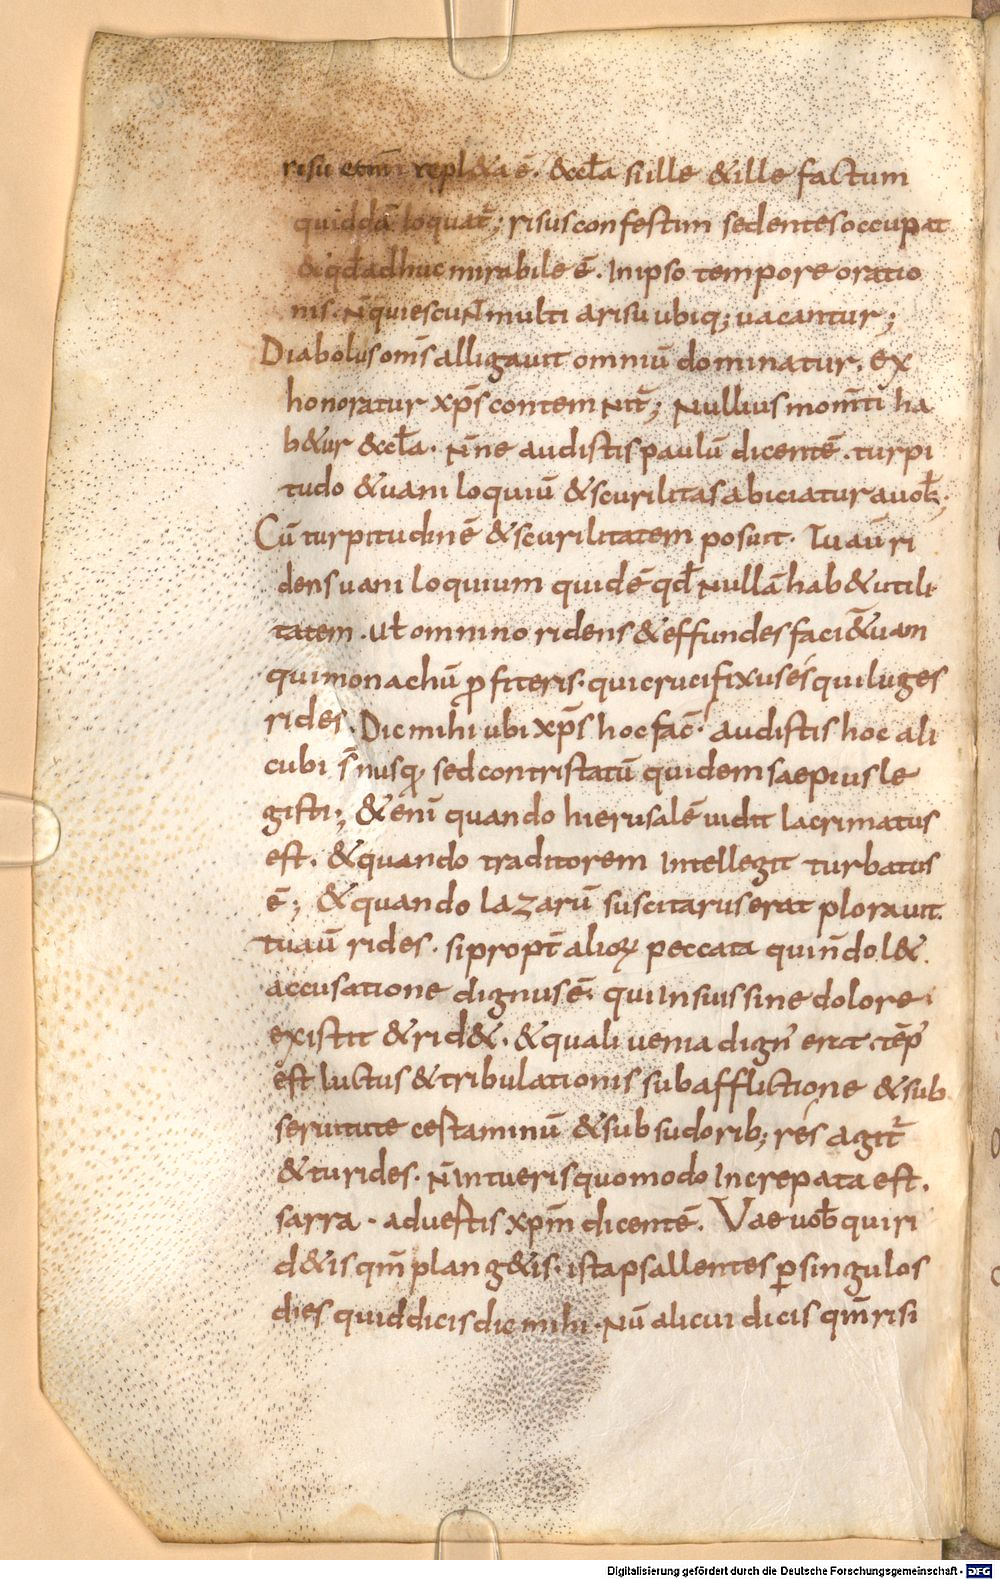 risu etim̄ repl&a ē. &eccl̄a si ille & ille factum
quiddā loquat̄; risus confestim sedentes occupat
& qd̄ adhuc mirabile ē. In ipso tempore oratio
nis. n̄ quiescunt multi a risu ubiq; uacantur;
Diabolus om̄s alligauit omniū dominatur. ex
honoratur xp̄s contemnit̄; Nullius mom̄ti ha
b&ur &eccl̄a. N̄ne audistis paulū dicentē. turpi
tudo & uaniloquiū & scurilitas abiciatur a uob̄;
Cū turpitudinē & scurilitatem posuit. Tu aū ri
dens uaniloquium quidē qd̄ nullā hab& utili
tatem. ut̄ omnino ridens & effundes faciē tuam
qui monachū ꝓfiteris. qui crucifixus es qui luges
rides. Dic mihi ubi xp̄s hoc fac̄. audistis hoc ali
cubi s̄ nusq; sed contristatū quidem saepius le
gisti; & enī quando hierusalē uidit lacrimatus
est. & quando traditorem intellegit turbatus
ē; & quando lazarū suscitarus erat plorauit.
tu aū rides. si propt̄ alioꝝ peccata qui n̄ dol&.
accusatione dignus ē. qui in suis sine dolore
existit & rid&. & quali uenia dign̄ erit. tēp̄
est luctus & tribulationis sub afflictione & sub
seruitute cestaminū & sub sudorib; res agit̄
& tu rides. n̄ intueris quomodo increpata est.
sarra. aduestis xp̄m dicentē. Vae uob̄ qui ri
d&is qm̄ plang&is. ista psallentes ꝑ singulos
dies quid dicis dic mihi. Nū alicui dicis qm̄ risi
Digitalisierung gefördert durch die Deutsche Forschungsgemeinschaft - DFG